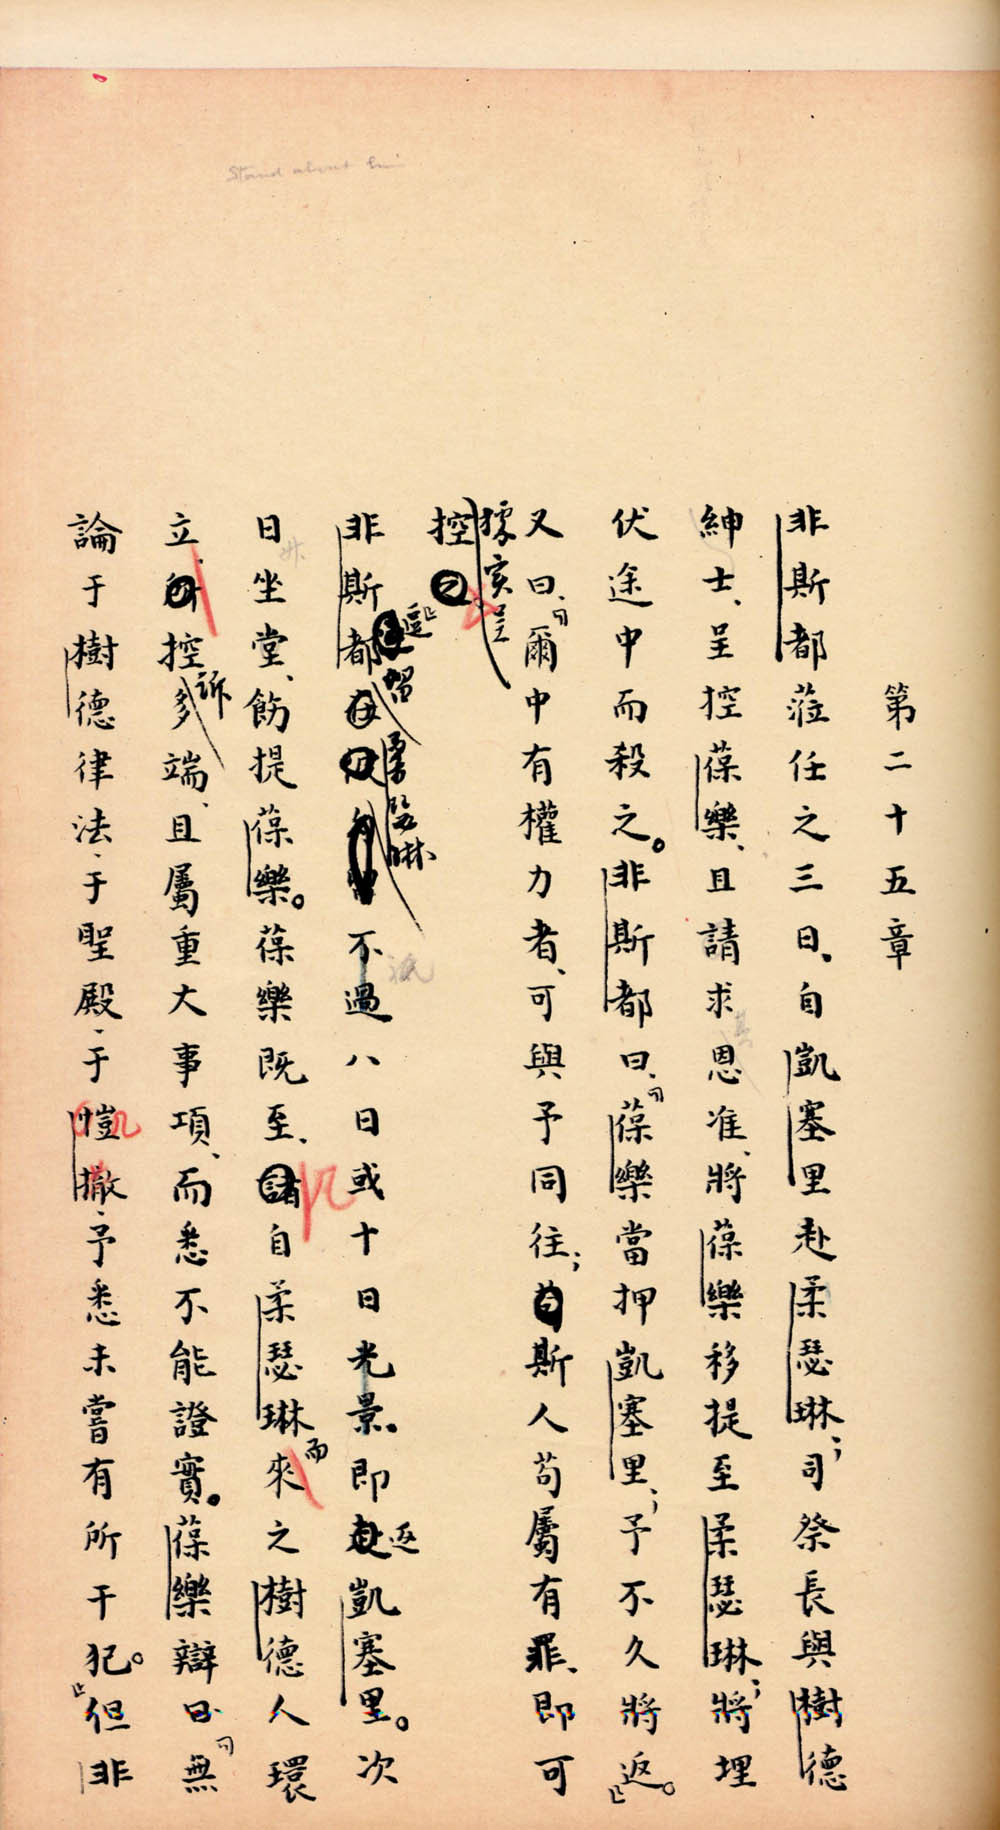 Stand about him
第二十五章
非斯都蒞任之三日。自凱塞里赴柔瑟琳；司祭長與樹德
紳士、呈控葆樂、且請求恩准、將葆樂移提至柔瑟琳；將埋
伏途中而殺之。非斯都曰、「葆樂當押凱塞里；予不久將返。」
又曰、「爾中有權力者、可與予同往；斯人苟屬有罪、即可
據實呈
控」
非斯都逗留柔瑟琳不過八日或十日光景。即返凱塞里。次
日坐堂、飭提葆樂。葆樂既至、自柔瑟琳而來之樹德人環
立、控訴多端、且屬重大事項、而悉不能證實。葆樂辯曰、「無
論于樹德律法、于聖殿、于愷撒、予悉未嘗有所干犯。」但非
凱